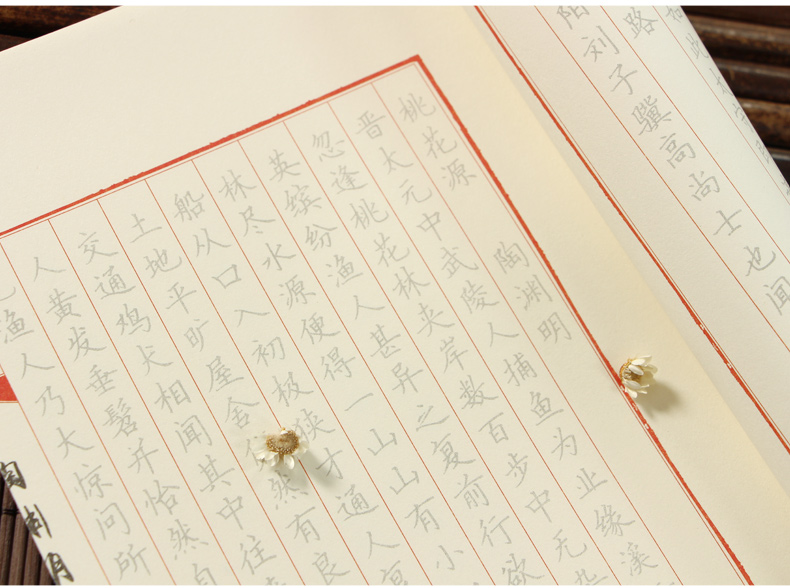 路
阳刘子骥高尚士也闻
桃花源 陶渊明
晋太元中武陵人捕鱼为业缘溪
忽逢桃花林夹岸数百步中无
英缤纷渔人甚异之复前行欲
林尽水源便得一山山有小
船从口入初极狭才通人
土地平旷屋舍 然有良
交通鸡犬相闻其中往
人黄发垂髫并怡然自
渔人乃大惊问所